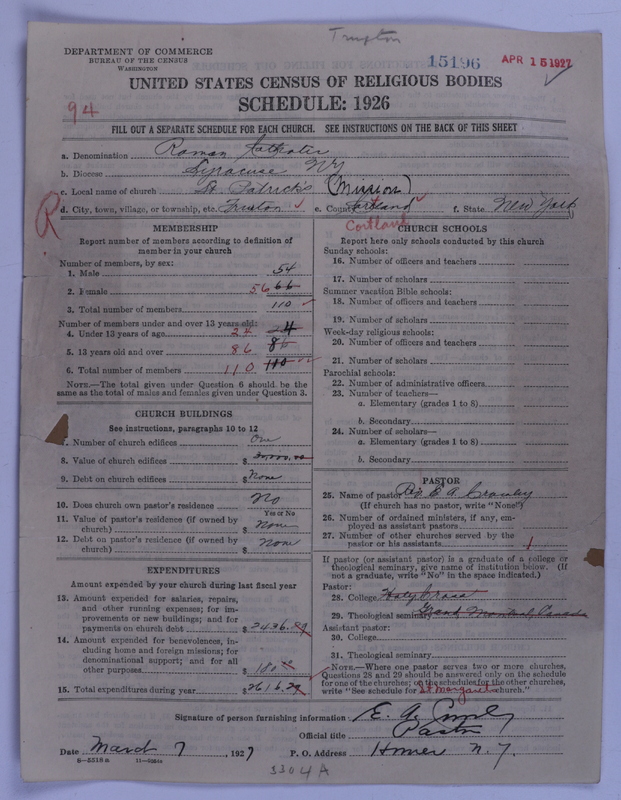 Truxton
15196 APR 15 1927
DEPARTMENT OF COMMERCE
BUREAU OF THE CENSUS
WASHINGTON
UNITED STATES CENSUS OF RELIGIOUS BODIES
SCHEDULE: 1926
94
FILL OUT A SEPARATE SCHEDULE FOR EACH CHURCH. SEE INSTRUCTIONS ON THE BACK OF THIS SHEET
a. Denomination Roman Catholic
b. Diocese Syracuse NY
c. Local name of church St Patrick's (Mission)
d. City, town, village, or township, etc. Truxton e. County Cortland f. State New York
R
Cortland
MEMBERSHIP
Report number of members according to definition of
member in your church
Number of members, by sex:
1. Male 54
2. Female 56 66
3. Total number of members 110
Number of members under and over 13 years old:
4. Under 13 years of age 24 24
5. 13 years old and over 86 86
6. Total number of members 110 110
NOTE.—The total given under Question 6 should be the
same as the total of males and females given under Question 3.
CHURCH BUILDINGS
See instructions, paragraphs 10 to 12
7. Number of church edifices One
8. Value of church edifices $
9. Debt on church edifices $ None
10. Does church own pastor's residence No
Yes or No
11. Value of pastor's residence (if owned by
church) $ None
12. Debt on pastor's residence (if owned by
church) $ None
EXPENDITURES
Amount expended by your church during last fiscal year
13. Amount expended for salaries, repairs,
and other running expenses; for im-
provements or new buildings; and for
payments on church debt $ 2436.29
14. Amount expended for benevolences, in-
cluding home and foreign missions; for
denominational support; and for all
other purposes $ 180
15. Total expenditures during year $ 2616.29
CHURCH SCHOOLS
Report here only schools conducted by this church
Sunday schools:
16. Number of officers and teachers
17. Number of scholars
Summer vacation Bible schools:
18. Number of officers and teachers
19. Number of scholars
Week-day religious schools:
20. Number of officers and teachers
21. Number of scholars
Parochial schools:
22. Number of administrative officers
23. Number of teachers—
a. Elementary (grades 1 to 8)
b. Secondary
24. Number of scholars—
a. Elementary (grades 1 to 8)
b. Secondary
PASTOR
25. Name of pastor Rev E. A.
(If church has no pastor, write "None")
26. Number of ordained ministers, if any, em-
ployed as assistant pastors
27. Number of other churches served by the
pastor or his assistants 1
If pastor (or assistant pastor) is a graduate of a college or
theological seminary, give name of institution below. (If
not a graduate, write "No" in the space indicated.)
Pastor:
28. College Holy Cross
29. Theological seminary Grand Montreal, Canada
Assistant pastor:
30. College
31. Theological seminary
NOTE.—Where one pastor serves two or more churches,
Questions 28 and 29 should be answered only on the schedule
for one of the churches; on the schedules for the other churches,
write "See schedule for St Margaret church."
Signature of person furnishing information E. A.
Official title Pastor
Date March 7, 1927 P. O. Address Homer N. Y.
8-5518a 11-5264a
3304A